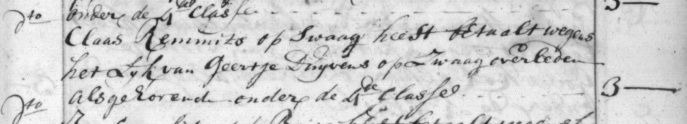 onder de 4de Classe
dto Claas Remmits op Swaag heeft betaalt wegens
het Lijk van Geertje Duyvens op Zwaag overleden
als gehorende onder de 4de Classe 3 —
dto